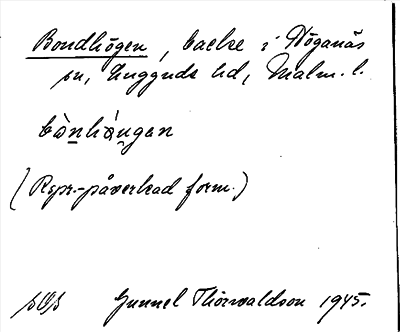 Bondhögen, backe i Höganäs
sn, Luggude hd, Malm. l.
bònhàu̯gan
(Rspr.-påverkad form.)
Gunnel Thorvaldson 1945.